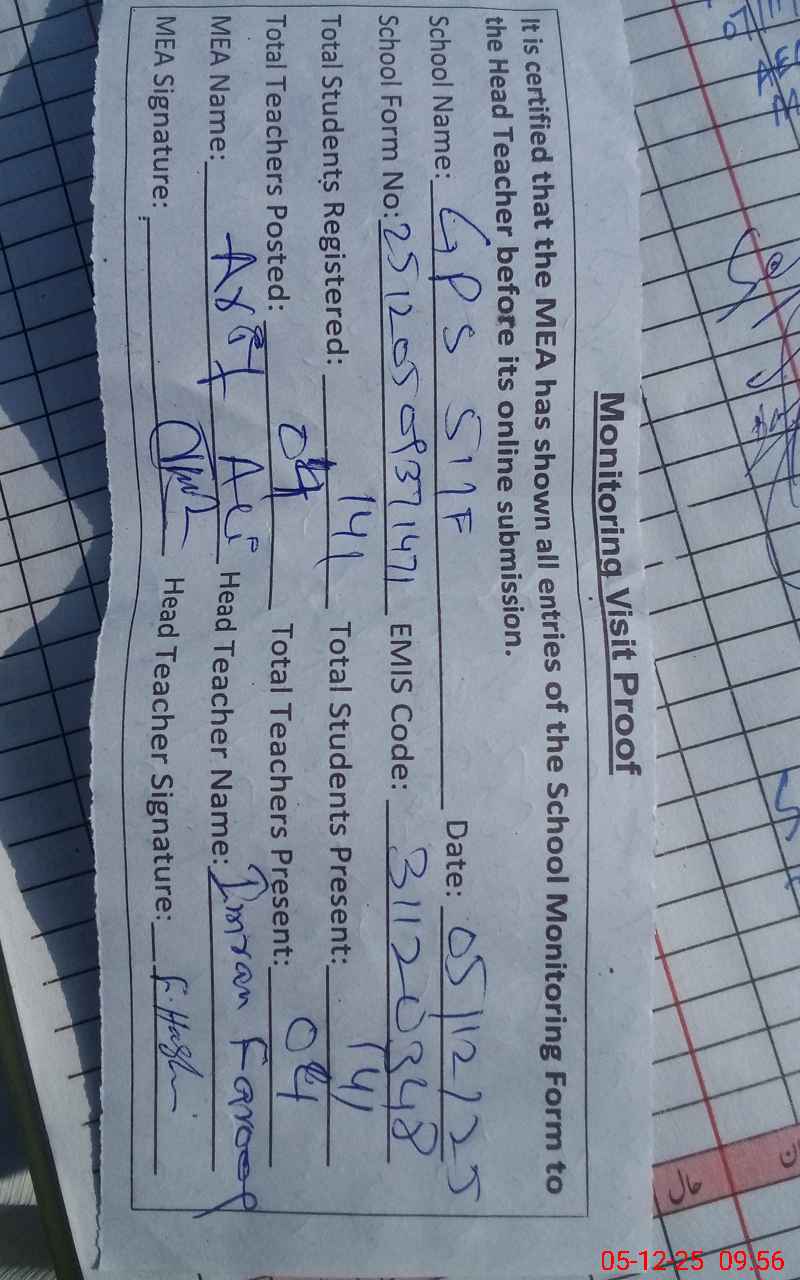 Monitoring Visit Proof
It is certified that the MEA has shown all entries of the School Monitoring Form to
the Head Teacher before its online submission.
School Name: GPS 511F Date: 05/12/25
School Form No: 25120509371471 EMIS Code: 31120348
Total Students Registered: 141 Total Students Present: 141
Total Teachers Posted: 04 Total Teachers Present: 04
MEA Name: Arif Ali Head Teacher Name: Imran Farooq
MEA Signature: Head Teacher Signature:
05-12-25 09:56